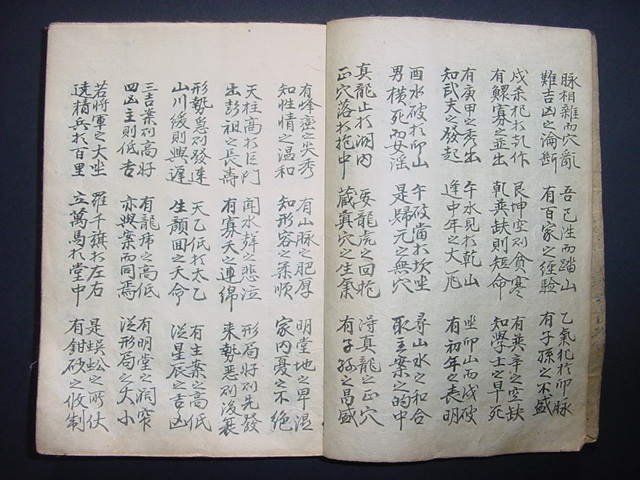 脉相雜而穴斷 吾已性而踏山 乙氣犯於卯脉
難吉凶之論斷 有百家之經驗 有子孫之不盛
戌乘犯於乳作 艮坤空則貧寒 有巽辛之空缺
有鰥寡之並出 乾巽缺則短命 知學士之早死
有庚甲之秀出 午水見於乾山 坐卯山而戌破
知武夫之發起 逢中年之大 有初年之喪明
酉水破於卯山 午破當於坎坐 尋山水之和合
男橫死而女淫 是歸元之無穴 取主案之的中
真龍止於洞内 要龍虎之回抱 得真龍之正穴
正穴落於抱中 藏真穴之生氣 有子孫之昌盛
有峰巒之尖秀 有山脉之肥厚 明堂地之卑湿
知性情之温和 知形容之柔順 家内憂之不絶
天柱高於巨門 聞水聲之悲泣 形局好則先發
出彭祖之長壽 有寡夭之連綿 来勢惡則後衰
形勢急則發速 天乙低於太乙 有主案之高低
山川緩則興遲 生顔回之夭命 從星辰之吉凶
三吉案則高好 有龍虎之高低 有明堂之洞窄
四凶主則低吉 亦與案而同焉 從形局之大小
若將軍之大坐 羅千旗於左右 是蜈蚣之所伏
遶精兵於百里 立萬馬於堂中 有鉗砂之收制